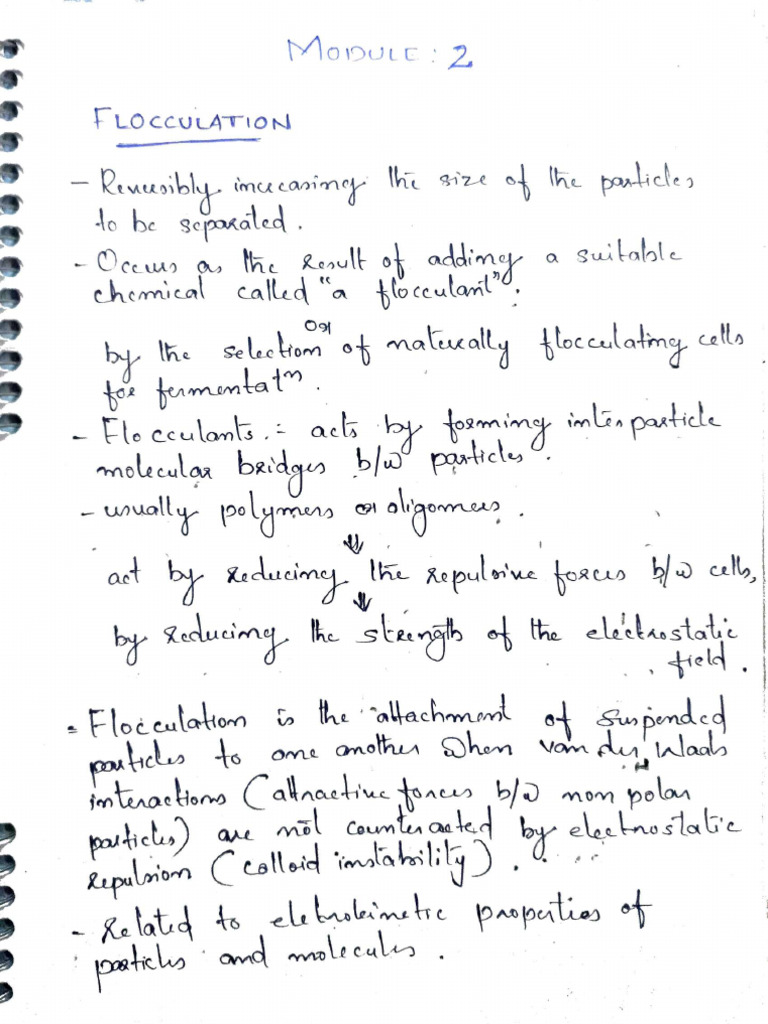 MODULE : 2
FLOCCULATION
- Reversibly increasing the size of the particles
to be separated.
- Occurs as the result of adding a suitable
chemical called "a flocculant".
or
by the selection of naturally flocculating cells
for fermentatⁿ.
- Flocculants :- acts by forming interparticle
molecular bridges b/w particles.
- usually polymers or oligomers.
⇓
act by reducing the repulsive forces b/w cells,
⇓
by reducing the strength of the electrostatic
field.
- Flocculation is the attachment of suspended
particles to one another when van der Waals
interactions (attractive forces b/w non polar
particles) are not counteracted by electrostatic
repulsion (colloid instability).
- Related to eletrokinetic properties of
particles and molecules.